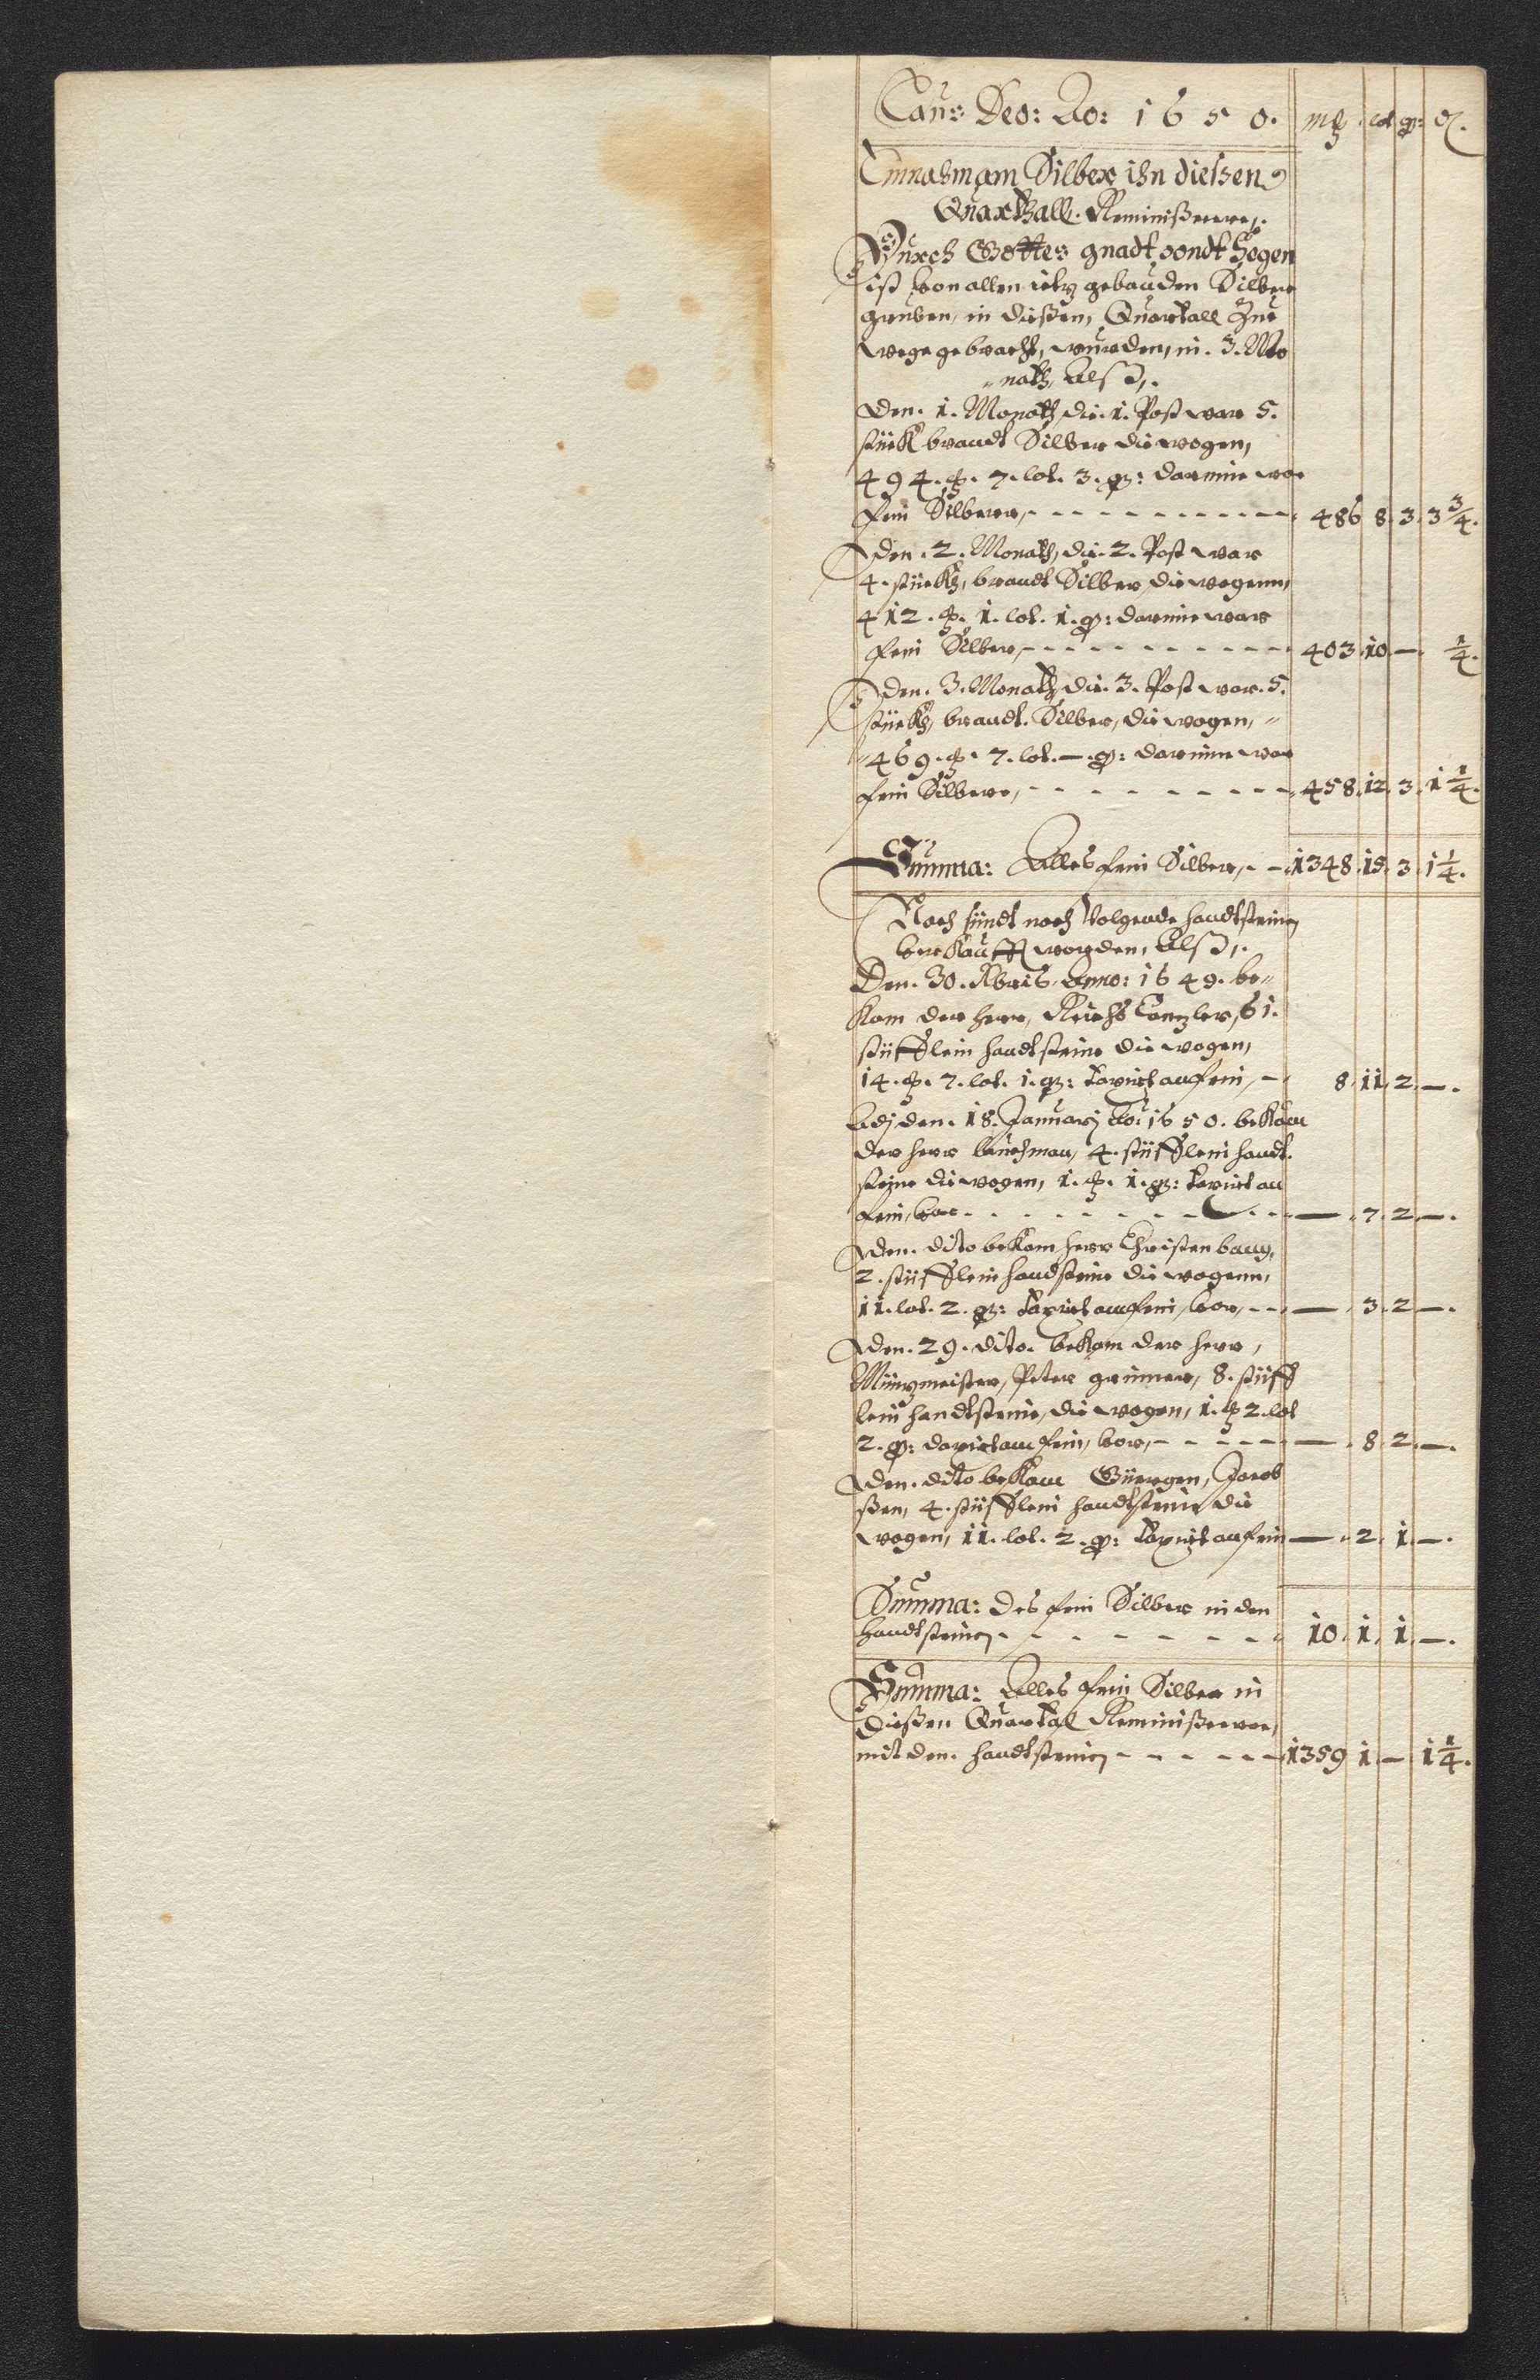 Laus Deo: Ao: 1650. | mk | lot | q: | d.
Einnahmem Silber ihn dießen
Quarthall. Reminißerre,.
Durch Gottes gnadt vondt Segen
ist von allen itz gebauden Silber
gruben, in dießen, Quartall Zue
wege gebracht, wurden, in. 3. Mo
"nath, Alß,.
Den. 1. Monath, die. 1. Post war 5.
stück brandt Silber die wogen,
494. mk. 7. lot. 3. q: darinne war
fein Silberr, - - - 486 | 8. | 3. | 3 3/4.
Den. 2. Monath, die. 2. Post war
4. stückh, brandt Silber, die wogenn,
412. mk. 1. lot. 1. q: darinne war
fein Silber, - - - 403 | 10 | — | 1/4.
Den. 3. Monath, die. 3. Post war. 5.
stückh, brandt. Silber, die wogen, "
"469. mk. 7. lot. —. q: darinne war
fein Silberr, - - - 458. | 12. | 3. | 1 1/4.
Summa: Alles fein Silber, - - 1348. | 15. | 3. | 1 1/4.
Noch sindt noch Volgende handtsteinen
verkaufft worden, Alß,.
Den. 30. Xbris. Anno: 1649. be"
kam der herr, Reichs Canzler, 61.
stüfflein handtsteine die wogen,
14. mk. 7. lot. 1. q: taxirt an fein, - 8. | 11 | 2. | —.
Adj den. 18. Januarj Ao: 1650. bekam
der herr 4. stüfflein handt.
steine die wogen, 1. mk. 1. q: taxirt an
fein, vor - - - — | 7. | 2. | —.
Den. dito bekam herr Christen bang,
2. stüfflein handsteine die wogenn,
11. lot. 2. q: taxirt an fein, vor, - - — | 3. | 2. | —.
Den. 29. dito. bekam der herr,
Müntzmeister, Peter grüner, 8. stüff
lein handtsteine, die wogen, 1. mk 2. lot
2. q: daxirt an fein, vor, - - - — | 8. | 2. | —.
Den. dito bekam Gürrgen, Jacob
ßen, 4. stüfflein handtsteine die
wogen, 11. lot. 2. q: taxirt an fein — | 2. | 1. | —.
Summa: des fein Silber in den
handtsteinen - - - 10. | 1. | 1. | —.
Summa: Alles fein Silber in
dießen Quartal Reminißerre,
mit den. handtsteinen - - - 1359 | 1. | — | 1 1/4.